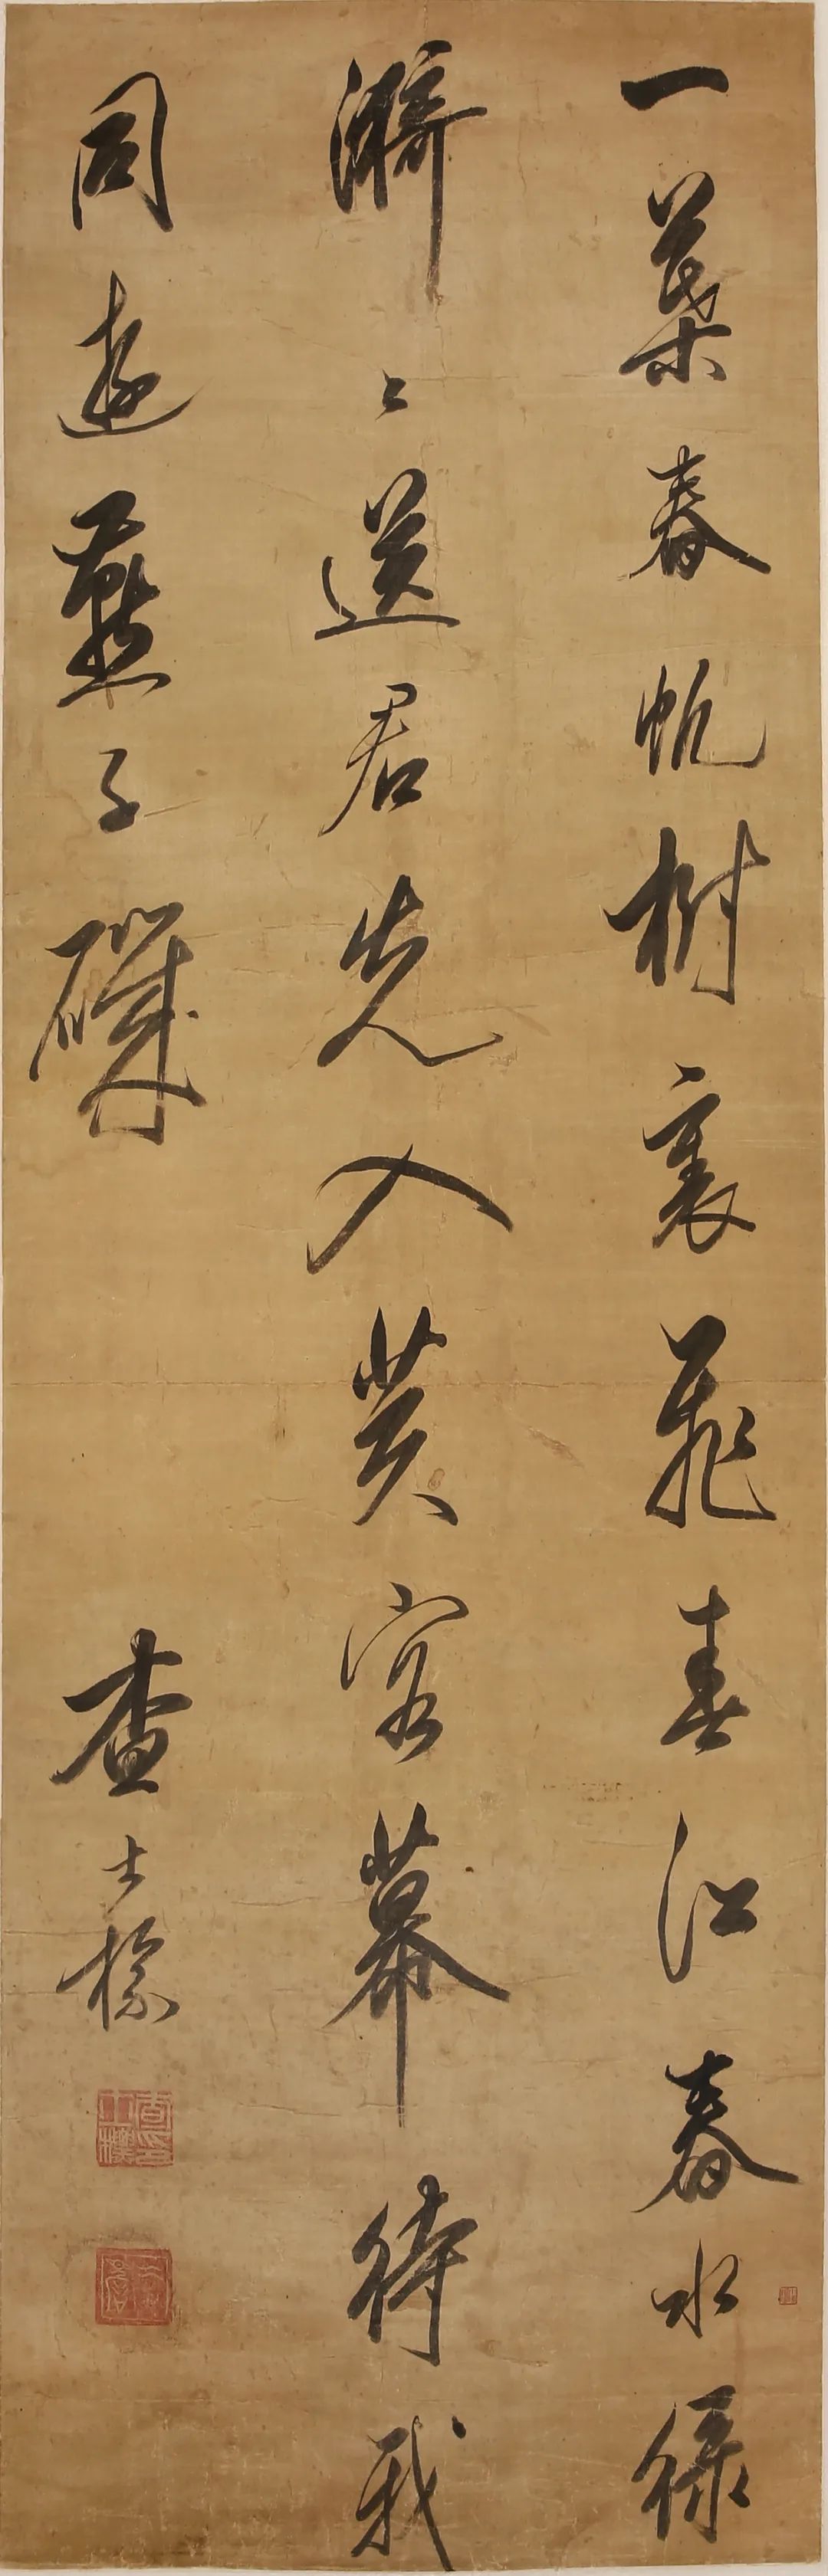 一葉春帆樹裏飛春江春水綠
漪〻送君先入芙蓉幕待我
同遊燕子磯
查士標
查印士標